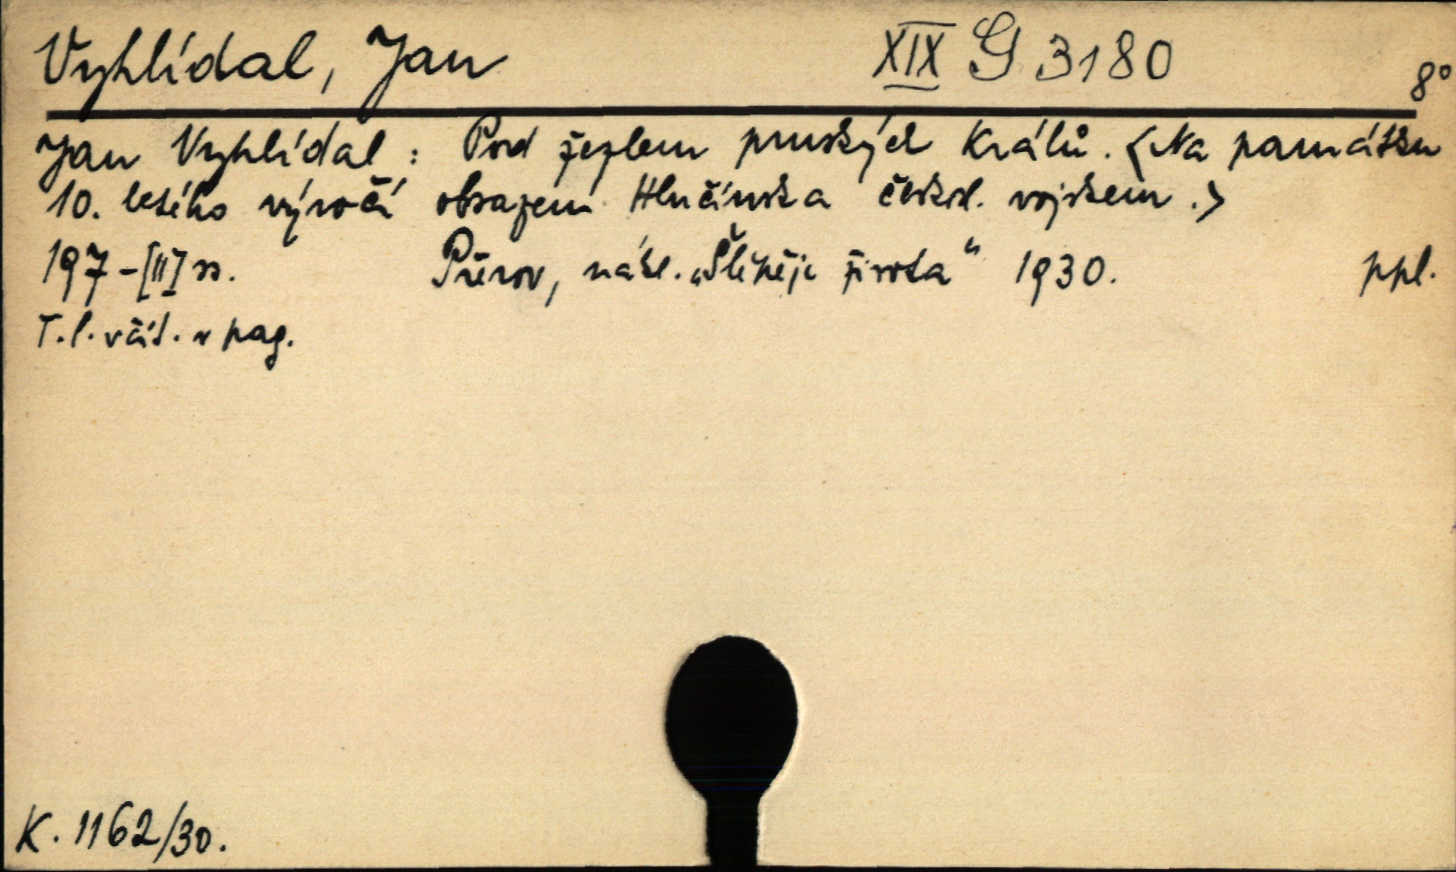 Vyhlídal, Jan XIX G 3180 8°
Jan Vyhlídal: Pod žezlem pruských králů. <Na památku
10. letého výročí obsazení Hlučínska českosl. vojskem.>
197-[II] ss. Přerov, nákl. „Šlépěje života“ 1930. ppl.
T.l. včít. v pag.
K. 1162/30.